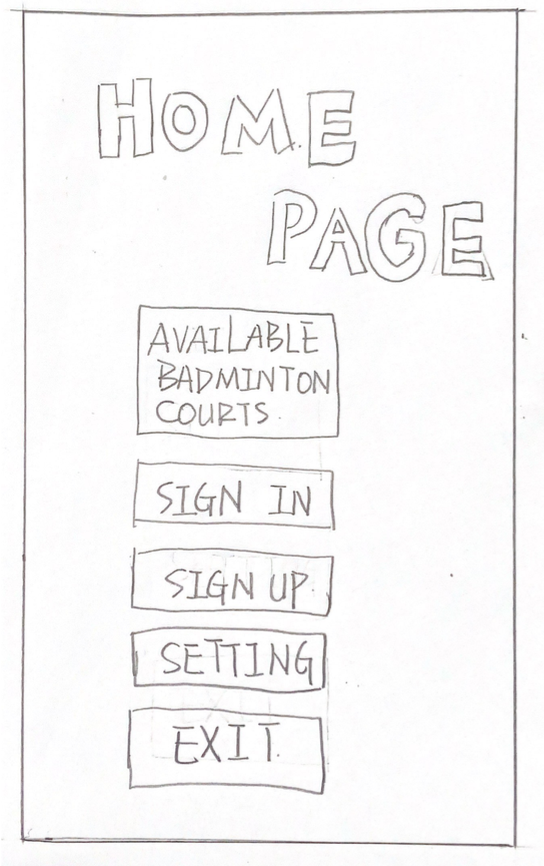 HOME
PAGE
AVAILABLE
BADMINTON
COURTS
SIGN IN
SIGN UP
SETTING
EXIT